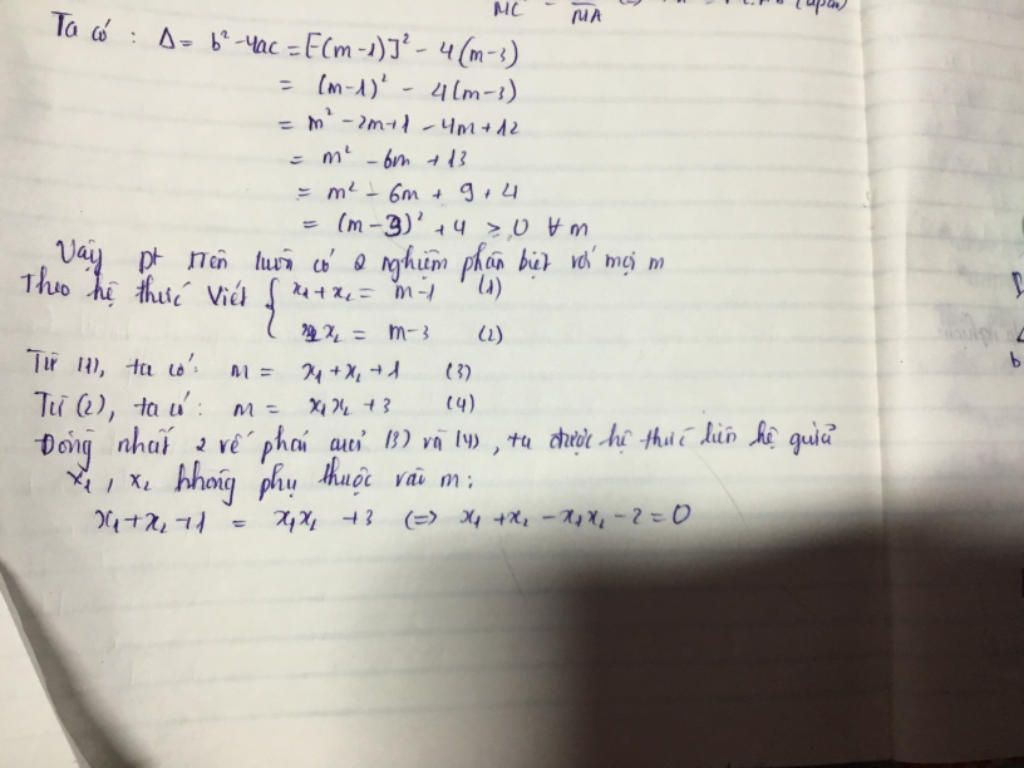 MC = MA
Ta có : Δ = b² - 4ac = [-(m-1)]² - 4(m-3)
= (m-1)² - 4(m-3)
= m² - 2m+1 - 4m+12
= m² - 6m + 13
= m² - 6m + 9 + 4
= (m-3)² + 4 ≥ 0 ∀ m
Vậy pt trên luôn có 2 nghiệm phân biệt với mọi m
Theo hệ thức Viét { x₁+x₂ = m-1 (1)
x₂ = m-3 (2)
Từ (1), ta có: m = x₁+x₂+1 (3)
Từ (2), ta có: m = x₁x₂+3 (4)
Đồng nhất 2 vế phải của (3) và (4), ta được hệ thức liên hệ giữa
x₁, x₂ không phụ thuộc vào m:
x₁+x₂+1 = x₁x₂ +3 (=> x₁+x₂-x₁x₂-2=0